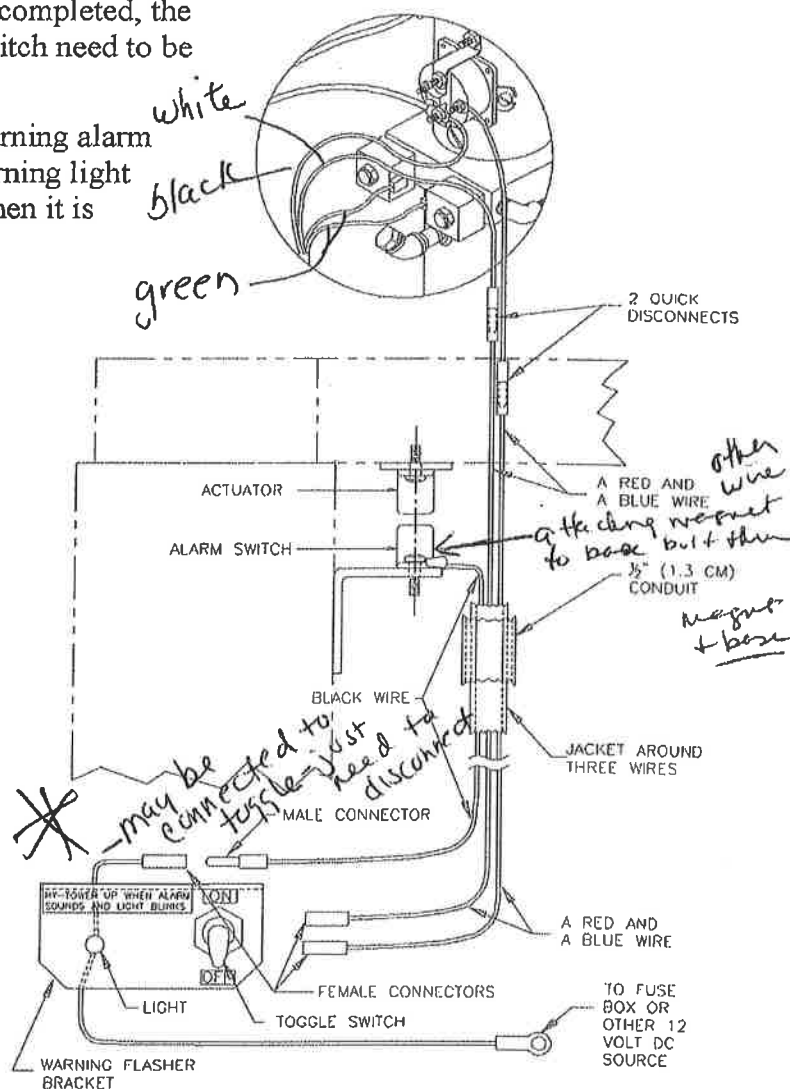 completed, the
itch need to be
rning alarm
rning light
hen it is
white
black
green
2 QUICK
DISCONNECTS
ACTUATOR
ALARM SWITCH
A RED AND
A BLUE WIRE
other
wire
attaching magnet
to base bolt then
½" (1.3 CM)
CONDUIT
magnet
+ base
BLACK WIRE
JACKET AROUND
THREE WIRES
may be
connected to
toggle-just
need to
disconnect
MALE CONNECTOR
HY-TOWER UP WHEN ALARM
SOUNDS AND LIGHT BLINKS
ON
OFF
A RED AND
A BLUE WIRE
LIGHT
FEMALE CONNECTORS
TOGGLE SWITCH
TO FUSE
BOX OR
OTHER 12
VOLT DC
SOURCE
WARNING FLASHER
BRACKET